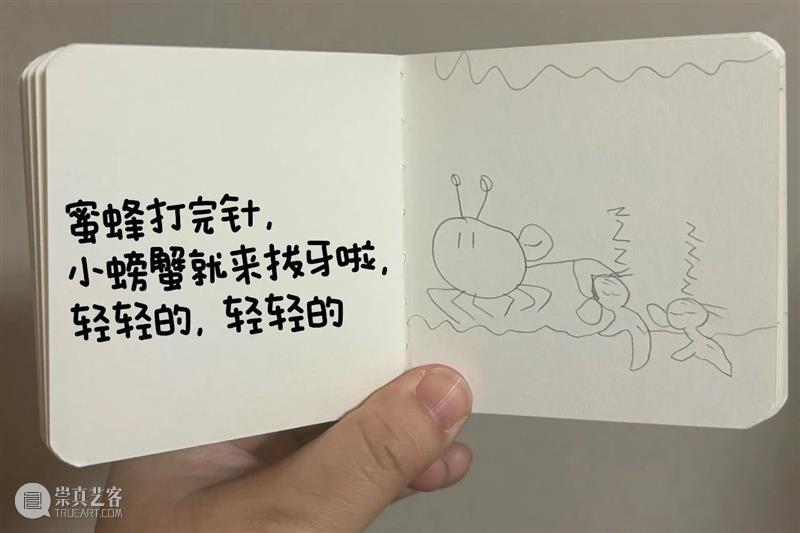 蜜蜂打完针,
小螃蟹就来拔牙啦,
轻轻的, 轻轻的
崇真艺客
TRUEART.COM